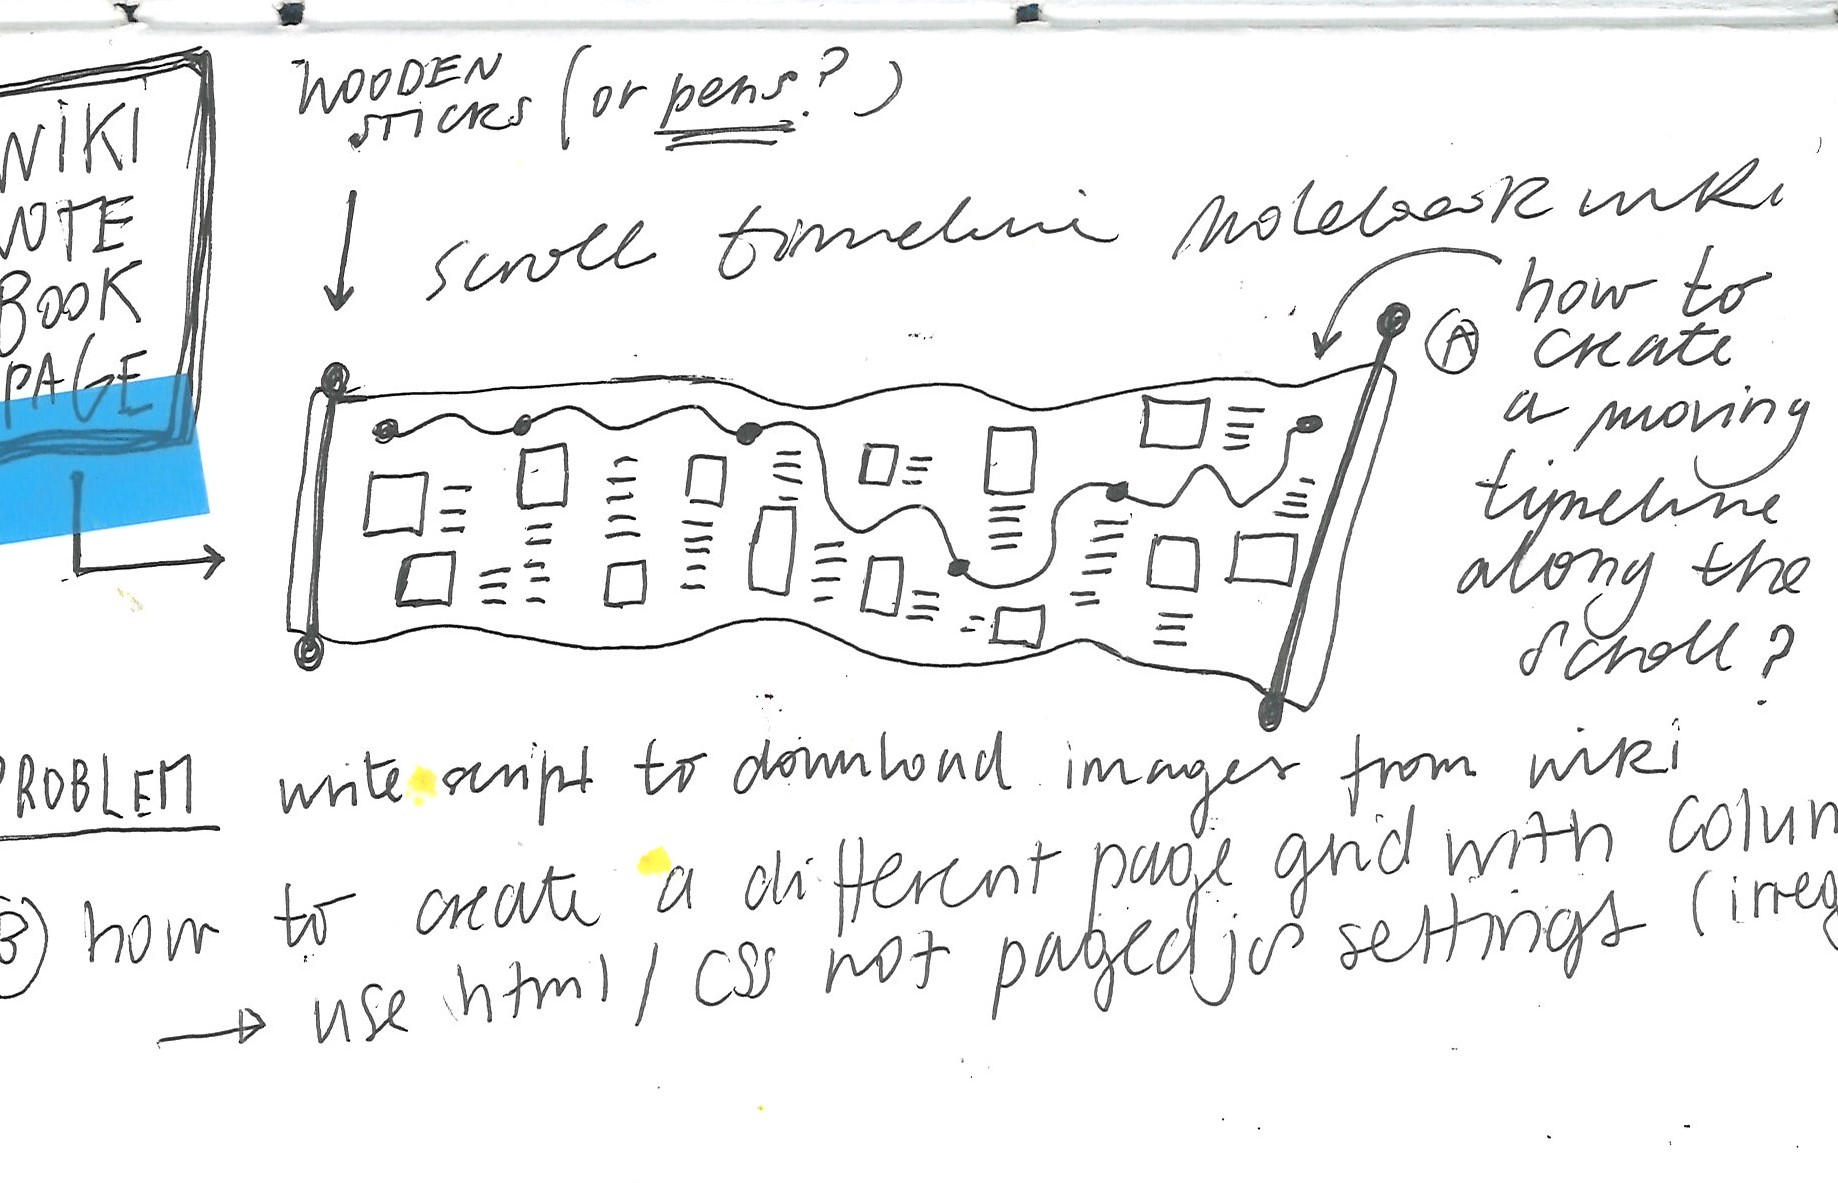 WIKI
NOTE
BOOK
PAGE
WOODEN
STICKS (or pens?)
scroll timeline notebook wiki
A how to
create
a moving
timeline
along the
scroll?
PROBLEM write script to download images from wiki
B how to create a different page grid with colum
→ use html/CSS not pagedjs settings (irreg